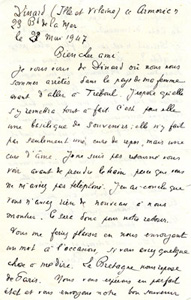 Dinard (Ille et Vilaine) en Armorique
Bd de la Mer
le 28 Mai 1947
Bien cher ami
Je vous écris de Dinard où nous nous
sommes arrêtés dans le pays de ma femme
avant d'aller à Tréboul. Jusqu'à présent elle
s'y remontre tout à fait. C'est pas elle
une basilique de souvenirs: elle n'y fait
pas seulement une cure de repos, mais une
cure d'âme. Je ne suis pas retourné vous
voir avant de prendre le train parce que vous
ne m'avez pas téléphoné. J'en ai conclu que
vous n'aviez rien de nouveau à nous
montrer. Ce sera donc pour notre retour.
Vous me ferez plaisir en nous envoyant
un mot à l'occasion, si vous avez quelque
chose à me dire. La Bretagne nous repose
de Paris. Nous vous espérons en parfait
état et vous envoyons notre bon souvenir